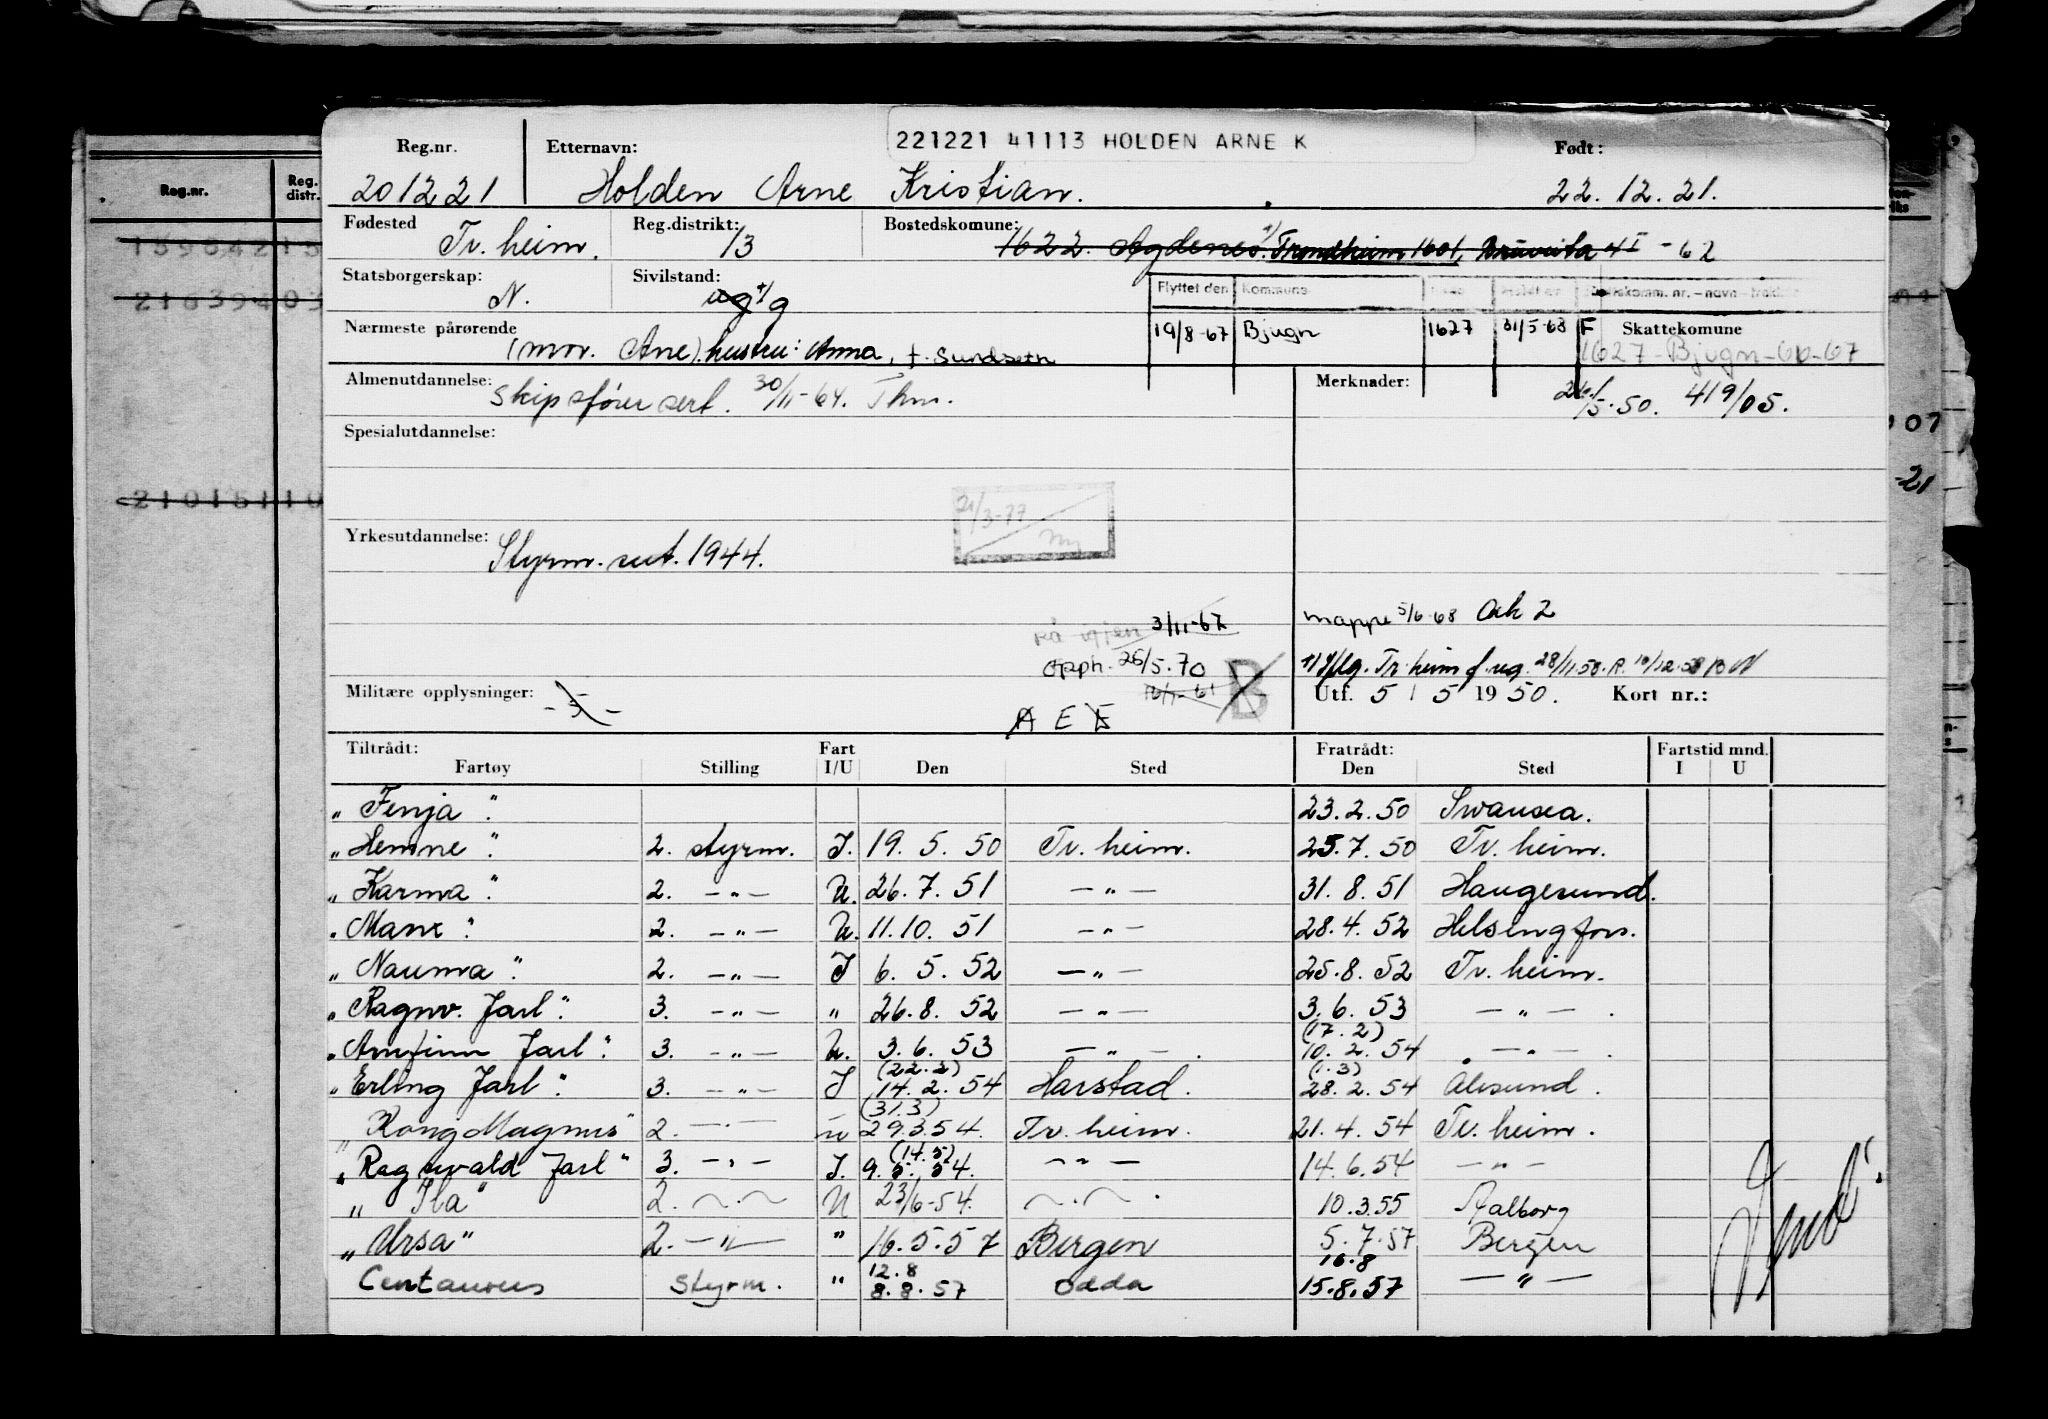 221221 41113 HOLDEN ARNE K
Reg.nr. Etternavn: Født:
201221 Holden Arne Kristian. 22.12.21.
Fødested Tr.heim. Reg.distrikt: 13 Bostedskomune: 1622. Agdenes. Trondheim 1601, 4 I - 62
Statsborgerskap: N. Sivilstand: ug g
Flyttet den Kommune
19/8-67 Bjugn 1627 31/5-68 F Skattekomune
Nærmeste pårørende (mor. Ane). hustru: Anna, f. Sundseth 1627-Bjugn-60-67
Almenutdannelse: Skipsfører sert. 30/11-64. Thm. Merknader: 5.50. 419/05.
Spesialutdannelse:
21/3-77
Yrkesutdannelse: Styrm. sert. 1944.
3/11-67 mappe 5/6-68 Ark 2
opph. 26/5.70 Tr.heim f. ug. 28/11.58. R. 10/12.58
16/1-61 B
Militære opplysninger: Utf. 5 / 5 1950. Kort nr.:
A E E
Tiltrådt: Fart Fratrådt: Fartstid mnd.
Fartøy Stilling I/U Den Sted Den Sted I U
"Fenja". 23.2.50 Swansea.
"Hemne". 2. styrm. I. 19.5.50 Tr.heim. 25.7.50 Tr.heim.
"Karma". 2. -"- U. 26.7.51 -"- 31.8.51 Haugesund.
"Manx". 2. -"- U. 11.10.51 -"- 28.4.52 Helsingfors.
"Nauma". 2. -"- I 6.5.52 -"- 25.8.52 Tr.heim.
"Ragnv. Jarl". 3. -"- " 26.8.52 -"- 3.6.53 -"-.
(17.2)
"Arnfinn Jarl". 3. -"- U. 3.6.53 -"-. 10.2.54 -"-.
(22.2) (1.3)
"Erling Jarl". 3. -"- I 14.2.54 Harstad. 28.2.54 Ålesund.
(31.3)
"Kong Magnus" 2. -"- U 29.3.54. Tr.heim. 21.4.54 Tr.heim.
(14.5)
"Ragnvald Jarl" 3. -"- I. 9.5.54. -"- 14.6.54 -"-
"Ila" 2. -"- U 23/6-54. -"-. 10.3.55 Aalborg
"Ursa" 2. -"- " 16.5.57 Bergen 5.7.57 Bergen
12.8 16.8
Centaurus Styrm. " 8.8.57 Odda 15.8.57 -"-
Reg.nr. Reg. distr.